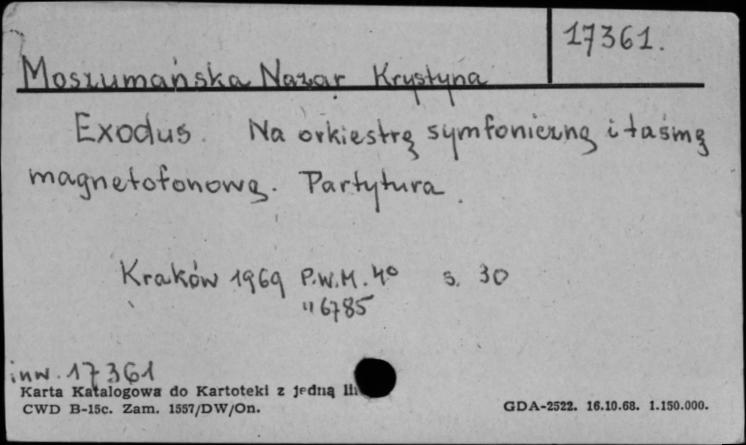 17361.
Moszumańska Nazar Krystyna
Exodus. Na orkiestrę symfoniczną i taśmę
magnetofonową. Partytura.
Kraków 1969 P.W.M. 4° s. 30
"6785
inw. 17361
Karta Katalogowa do Kartoteki z jedną
CWD B-15c. Zam. 1557/DW/On.
GDA-2522. 16.10.68. 1.150.000.